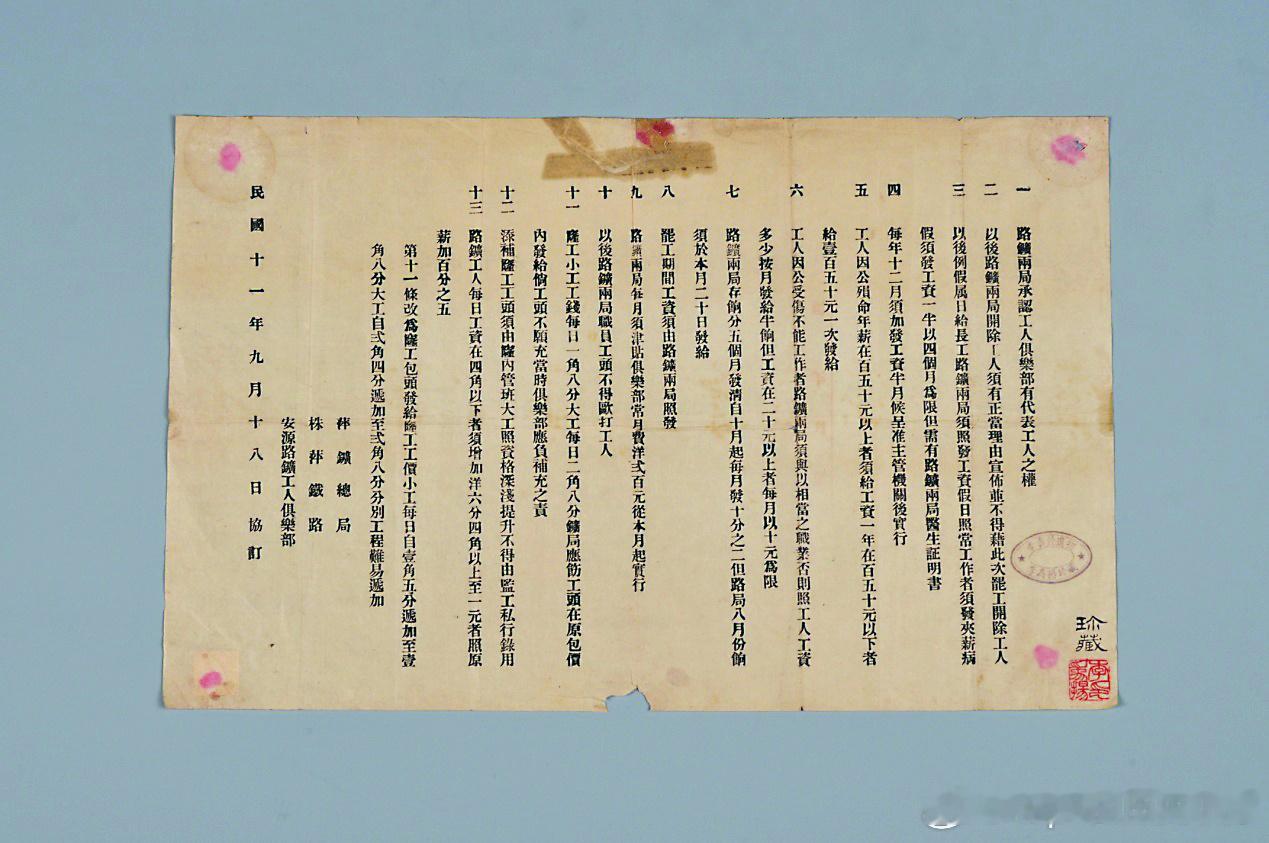 一 路鑛兩局承認工人俱樂部有代表工人之權
二 以後路鑛兩局開除工人須有正當理由宣佈並不得藉此次罷工開除工人
三 以後例假属日給長工路鑛兩局須照發工資假日照常工作者須發夾薪病
假須發工資一半以四個月爲限但需有路鑛兩局醫生証明書
四 每年十二月須加發工資半月候呈准主管機關後實行
五 工人因公殞命年薪在百五十元以上者須給工資一年在百五十元以下者
給壹百五十元一次發給
六 工人因公受傷不能工作者路鑛兩局須與以相當之職業否則照工人工資
多少按月發給半餉但工資在二十元以上者每月以十元爲限
七 路鑛兩局存餉分五個月發清自十月起每月發十分之二但路局八月份餉
須於本月二十日發給
八 罷工期間工資須由路鑛兩局照發
九 路鑛兩局每月須津貼俱樂部常月費洋弍百元從本月起實行
十 以後路鑛兩局職員工頭不得歐打工人
十一 窿工小工工錢每日一角八分大工每日二角八分鑛局應飭工頭在原包價
內發給倘工頭不願充當時俱樂部應負補充之責
十二 添補窿工工頭須由窿內管班大工照資格深淺提升不得由監工私行錄用
十三 路鑛工人每日工資在四角以下者須增加洋六分四角以上至一元者照原
薪加百分之五
第十一條改爲窿工包頭發給窿工工價小工每日自壹角五分遞加至壹
角八分大工自弍角四分遞加至弍角八分分別工程難易遞加
萍鑛總局
株萍鐵路
安源路鑛工人俱樂部
民國十一年九月十八日協訂
珍藏